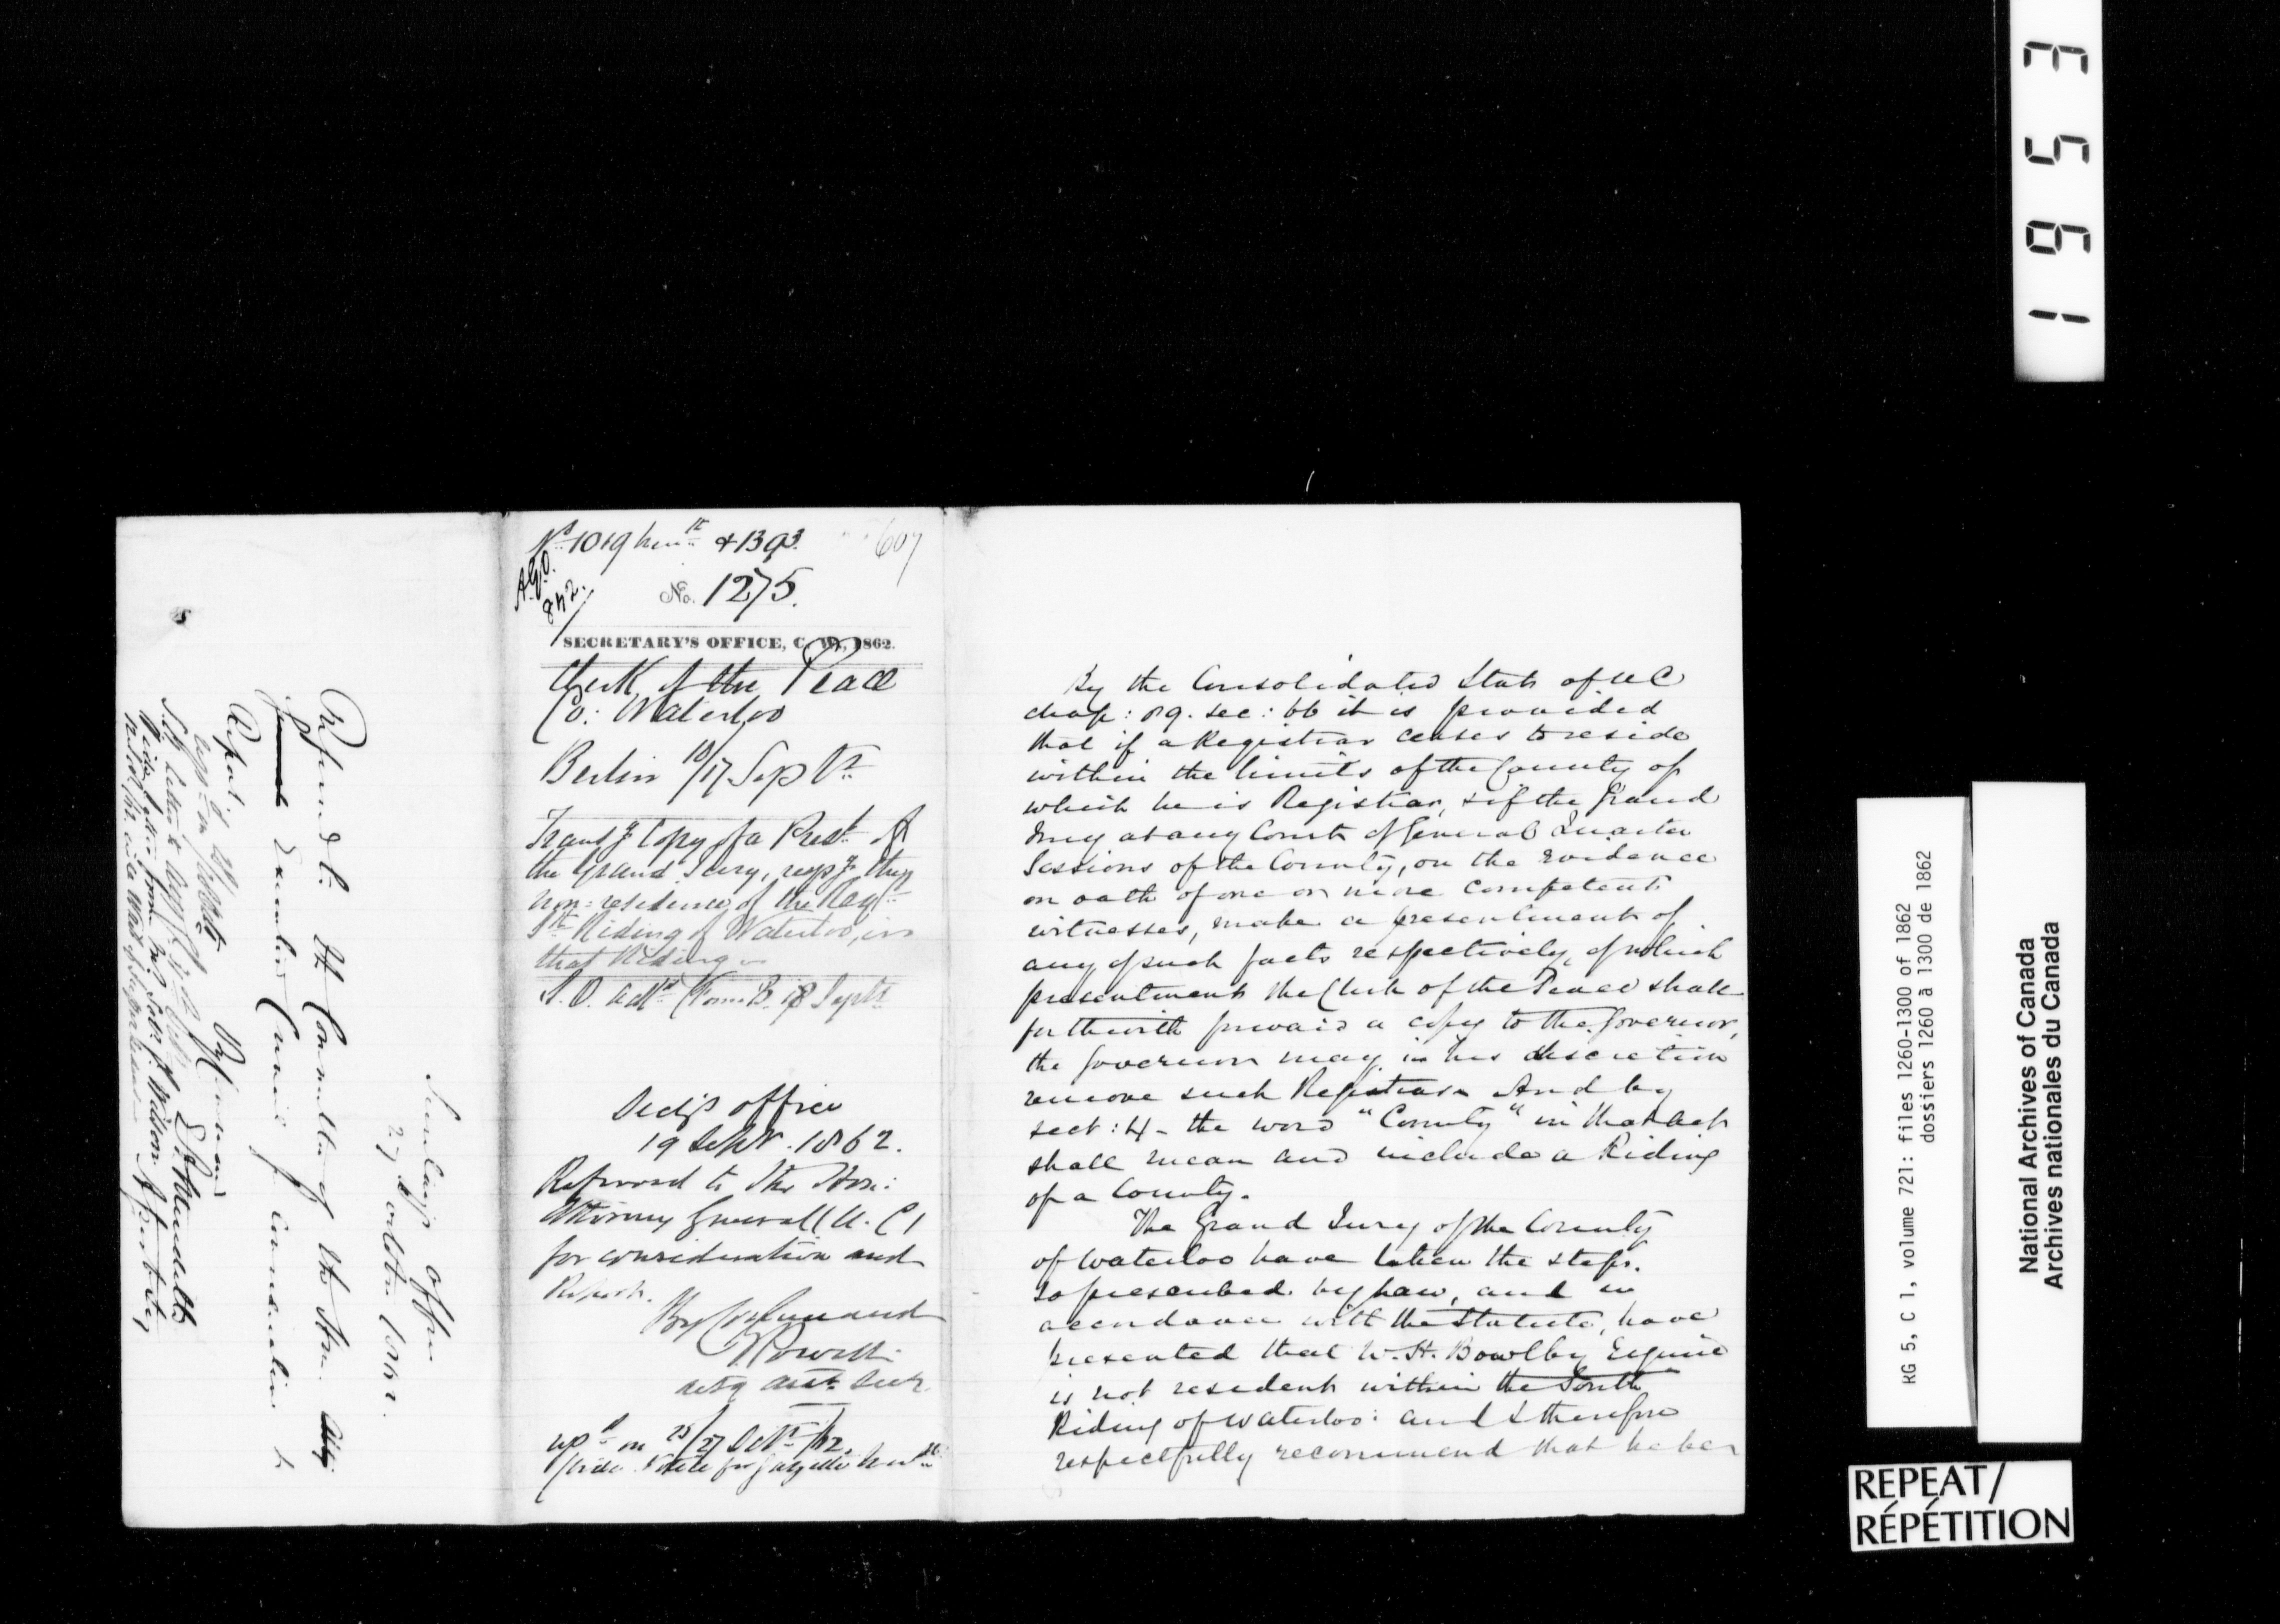 No. 1019 & 1393.
607
A.G.O.
842.
No. 1275.
SECRETARY'S OFFICE, C. W., 1862.
Clerk of the Peace
Co: Waterloo
Berlin 10/17 Sept
Transg Copy of a Prest. of
the Grand Jury, respg the
non-residence of the Regr
Sth Riding of Waterloo, in
that Riding
18 Sept
Secy's office
19 Sept. 1862.
Referred to the Hon:
Attorney General (U. C)
for consideration and
Report.
By Command
Powell
actg asst. Secr.
on 25/27 Octr /62.
By the Consolidated Stats of U C
chap: 89. sec: 66 it is provided
that if a Registrar ceases to reside
within the limits of the County of
which he is Registrar, & if the Grand
Jury at any Court of General Quarter
Sessions of the County, on the evidence
on oath of one or more competent
witnesses, make a presentment of
any of such facts respectively, of which
presentment the Clerk of the Peace shall
forthwith forward a copy to the Governor,
the Governor may in his discretion
remove such Registrar And by
sect: 4 - the word "County" in that act
shall mean and include a Riding
of a County.
The Grand Jury of the County
of Waterloo have taken the steps.
so prescribed by law, and in
accordance with the Statute, have
presented that W. H. Bowlby Esquire
is not resident within the South
Riding of Waterloo: and I therefore
respectfully recommend that he be
Secretary's office
27 October 1862.
Referred to the Committee of the Hon.
Executive Council for consideration &
Report.
By Command
1953
RG 5, C 1, volume 721: files 1260-1300 of 1862
dossiers 1260 à 1300 de 1862
National Archives of Canada
Archives nationales du Canada
REPEAT/
RÉPÉTITION